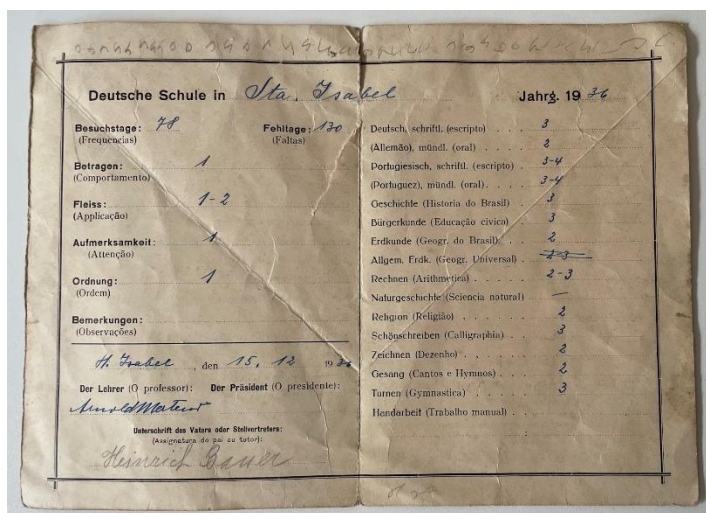 Deutsche Schule in Sta. Isabel
Jahrg. 1936
Besuchstage: 78
(Frequencias)
Fehltage: 130
(Faltas)
Betragen: 1
(Comportamento)
Fleiss: 1-2
(Applicação)
Aufmerksamkeit: 1
(Attenção)
Ordnung: 1
(Ordem)
Bemerkungen:
(Observações)
St. Isabel, den 15. 12 1936
Der Lehrer (O professor): Der Präsident (O presidente):
Arnold
Unterschrift des Vaters oder Stellvertreters:
(Assignatura do pai ou tutor):
Heinrich Bauer
Deutsch, schriftl. (escripto) . . . 3
(Allemão), mündl. (oral) . . . . 2
Portugiesisch, schriftl. (escripto) . 3-4
(Portuguez), mündl. (oral) . . . . 3-4
Geschichte (Historia do Brasil) . 3
Bürgerkunde (Educação civica) . 3
Erdkunde (Geogr. do Brasil) . . 2
Allgem. Erdk. (Geogr. Universal) . 2-3
Rechnen (Arithmetica) . . . . . 2-3
Naturgeschichte (Sciencia natural) —
Religion (Religião) . . . . . 2
Schönschreiben (Calligraphia) . . 3
Zeichnen (Dezenho) . . . . . 2
Gesang (Cantos e Hymnos) . . . 2
Turnen (Gymnastica) . . . . 3
Handarbeit (Trabalho manual) . .